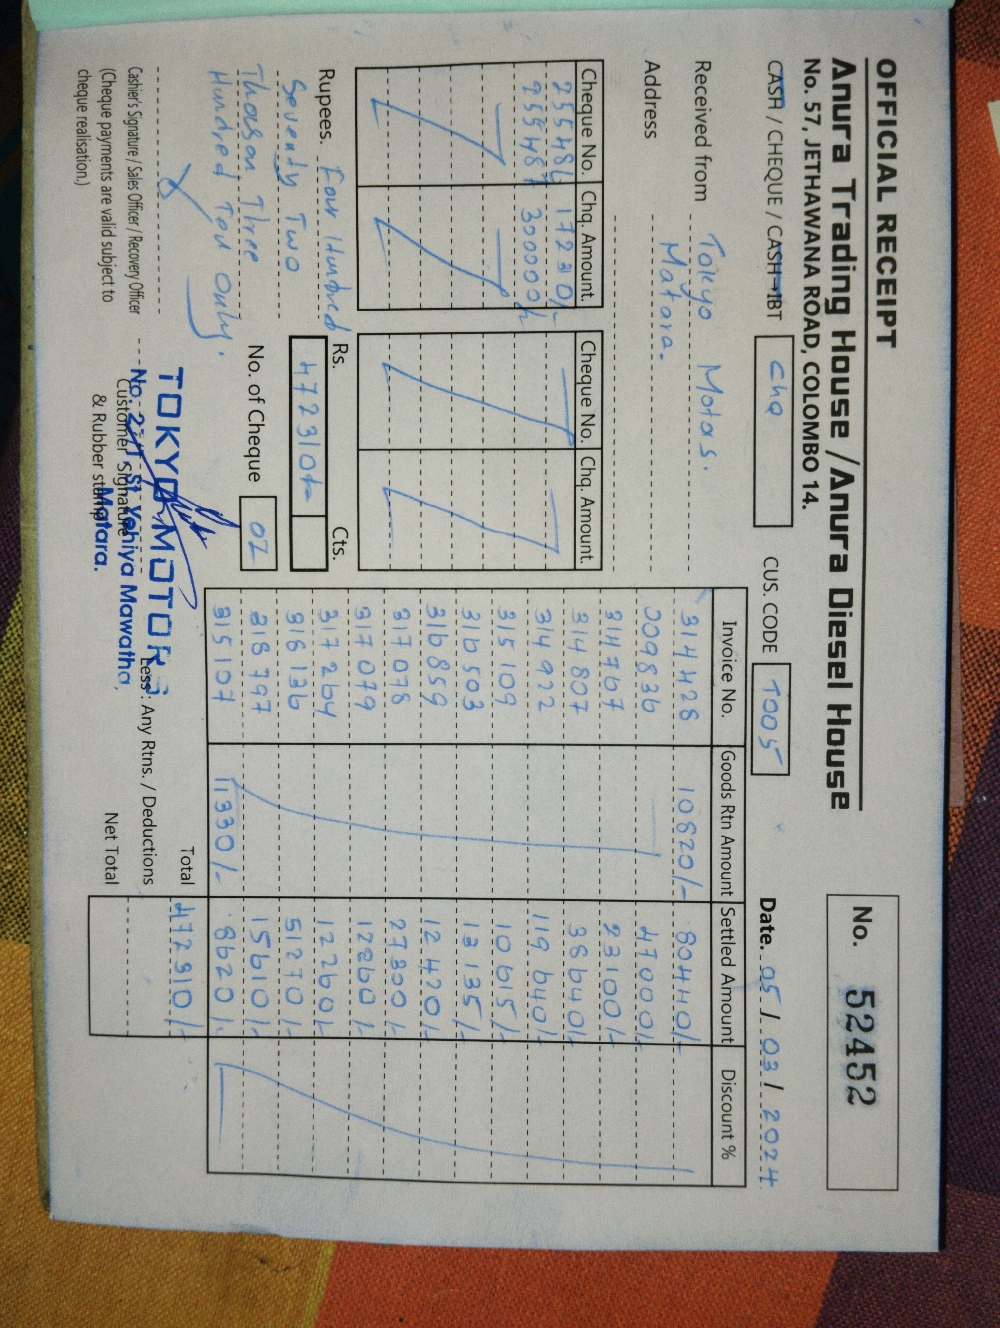 OFFICIAL RECEIPT
Anura Trading House / Anura Diesel House
No. 57, JETHAWANA ROAD, COLOMBO 14.
No. 52452
CASH / CHEQUE / CASH→IBT chq CUS. CODE T005 Date. 05 / 03 / 2024
Received from Tokyo Motors.
Address Matara.
Cheque No. Chq. Amount. Cheque No. Chq. Amount.
255486 172310/-
255487 300000/-
Rupees. Four Hundred
Seventy Two
Thouson Three
Hundred Ten Only.
Rs. Cts.
472310/-
No. of Cheque 02
Invoice No. Goods Rtn Amount Settled Amount Discount %
314428 10820/- 80440/-
009836 47000/-
314767 23100/-
314807 38640/-
314922 119640/-
315109 10615/-
316503 13135/-
316859 12420/-
317078 27300/-
317079 12860/-
317264 12260/-
318136 51270/-
318797 15610/-
315107 11330/- 8620/-
Total 472310/-
Less : Any Rtns. / Deductions
Net Total
Cashier's Signature / Sales Officer / Recovery Officer
(Cheque payments are valid subject to
cheque realisation.)
Customer Signature
& Rubber stamp
TOKYO MOTORS
Yehiya Mawatha,
Matara.